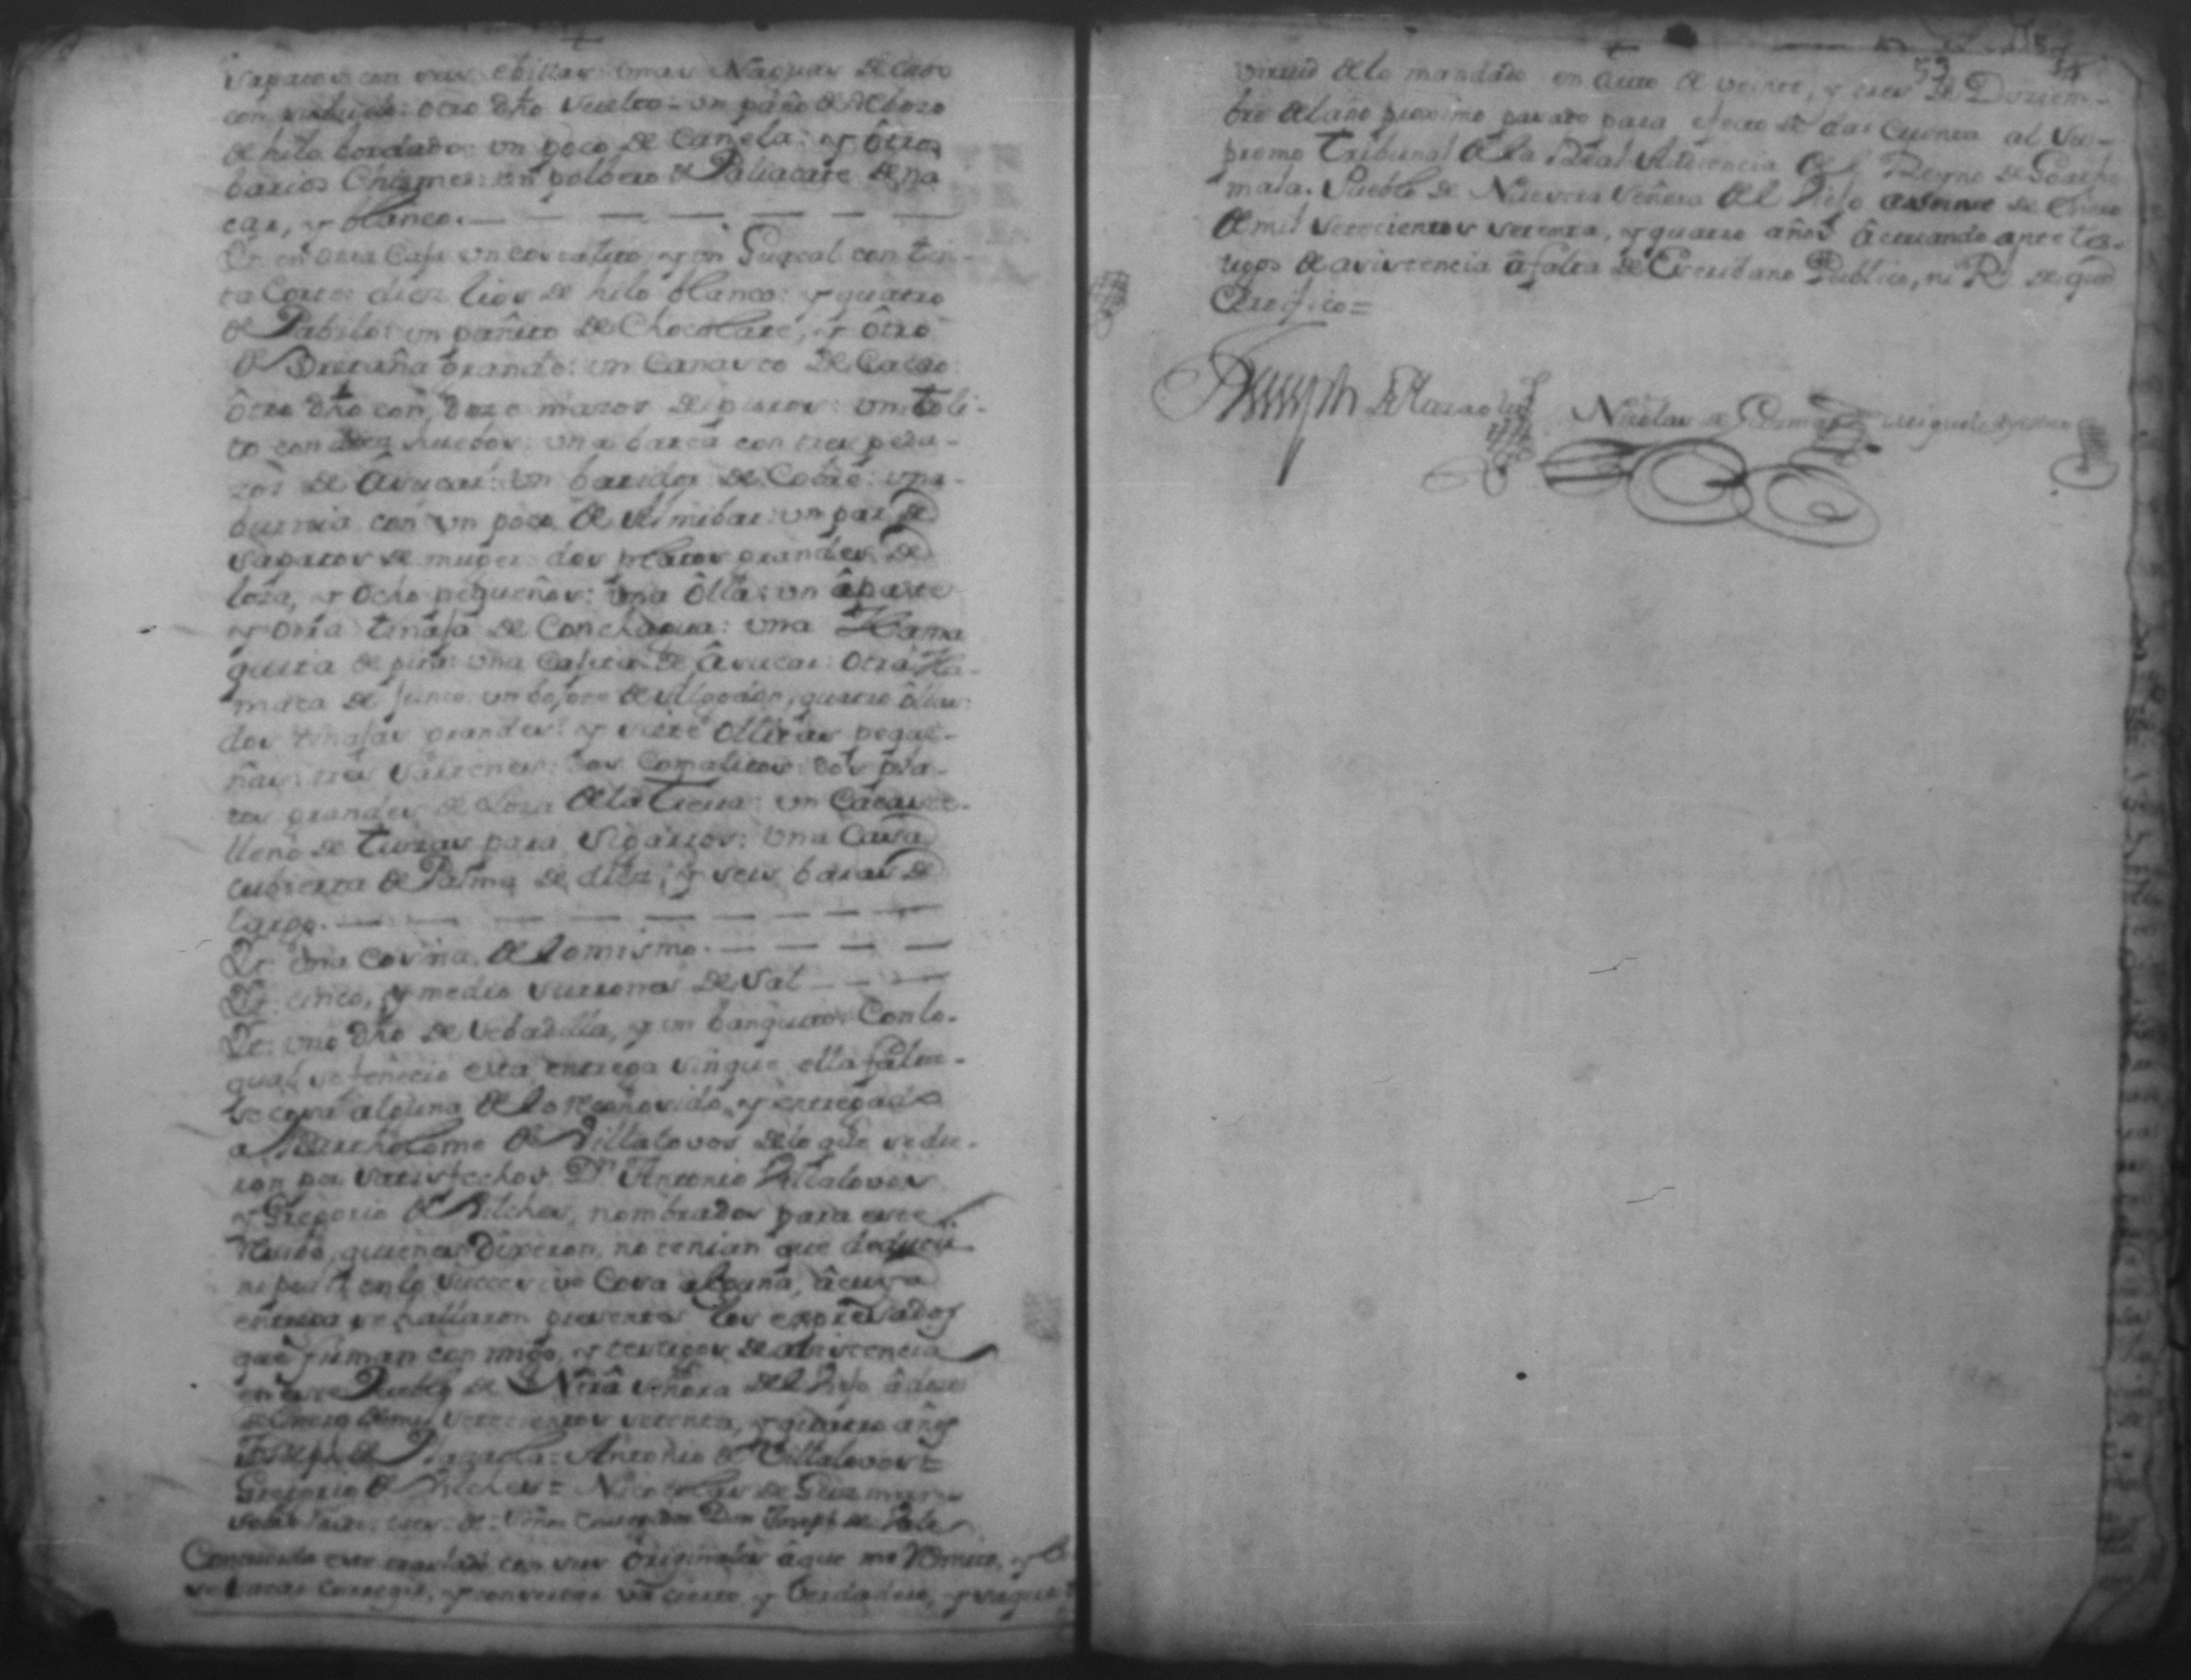 sapatos con sus ebillas: unas Naguas de
con otro dho vuelto = un paño de Rebozo
de hilo bordado: un poco de Canela: y ôtros
barios Chismes: un polbero de Paliacate de na
car, y blanco. — — — — — — —
Yt. en otra Caja un y un Guacal con tin-
ta diez lios de hilo blanco: y quatro
de Pabilo: un pañito de Chocolate, y ôtro
de Bretaña grande: un Canasto de Cacao:
ôtro dho con doze mazos de un toli-
to con diez huebos: una barca con tres peda-
zos de Asucar: un batidor de Cobre: una
burnia con un poco de Almibar: un par de
sapatos de muger: dos platos grandes de
loza, y ocho pequeños: una ôlla: un âpaste
y otra tinaja de Conchagua: una Hama
quita de pita: una Cajita de Âsucar: otra Ha-
maca de junco: un de Algodon, quatro ôllas:
dos tinajas grandes: y siete ôllitas peque-
ñas: tres sartenes: dos Comalitos: dos pla-
tos grandes de Loza de la Tierra: un Cacaste
lleno de tuzas para sigarros: una Casa
cubierta de Palma de diez, y seis baras de
largo. — — — — — — — —
Yt. una cosina de lo mismo. — — — —
Yt. cinco, y medio surrones de sal — — —
Yt. uno dho de Sebadilla, y un banquito. Con lo-
qual se feneció esta entrega sin que ella falta-
se cosa alguna de lo reconosido, y entregado
a Bartholome de Villalovos de lo que se die-
ron por satisfechos Dn. Antonio Villalovos
y Gregorio de Vilches, nombrados para este
Resibo, quienes Dixeron, no tenian que deducir
ni pedir en lo successivo Cosa alguna, â cuya
entrega se hallaron presentes los expresados
que firman con migo, y testigos de asistencia
en este Pueblo de Ntrâ Señora del Viejo â doze
de Enero de mil setecientos setenta, y quatro años
Joseph de Plazaola = Antonio de Villalovos =
Gregorio de Vilches = Nicolas de Guzman =
Señor Corregidor Don Joseph de Plaz
Concuerda este traslado con sus originales â que me Remito, y
se sacar Corregir, y concertar va cierto y Verdadero, y saqué
57
59
virtud de lo mandado en auto de veinte, y tres de Diziem-
bre del año proximo pasado para efecto de dar Cuenta al Su-
premo Tribunal de la Real Audiencia del Reyno de Goathe
mala. Pueblo de Nuestra Señora del Viejo de Enero
de mil setecientos setenta, y quatro años âctuando ante tes-
tigos de asistencia â falta de Escribano Publico, ni Rl. de que
Certifico =
Joseph de Plazaola Nicolas de Guzman Miguel